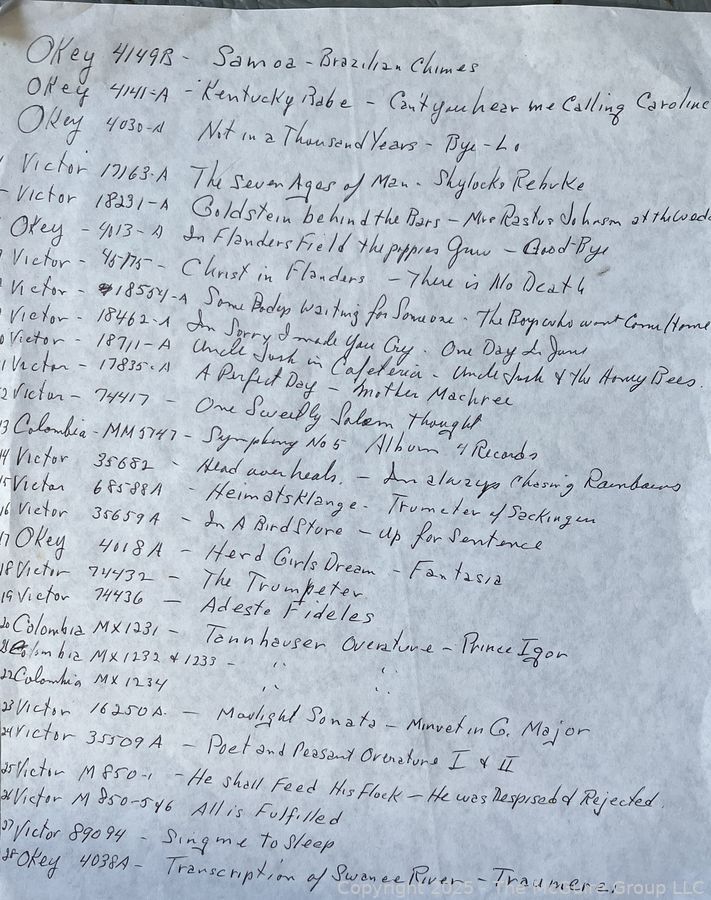 OKey 4149B - Samoa - Brazilian Chimes
OKey 4141-A - Kentucky Babe - Can't you hear me Calling Caroline
OKey 4030-A Not in a Thousand Years - Bye-Lo
Victor 17163-A The Seven Ages of Man - Shylocks Rebuke
Victor 18231-A Goldstein behind the Bars - Mrs Rastus Johnson at the
OKey - 4013-A In Flanders Field the poppies Grow - Good Bye
Victor - 45175 - Christ in Flanders - There is No Death
Victor - 18554-A Some Bodys waiting for Someone - The Boys who wont Come Home
Victor - 18462-A Im Sorry I made you Cry. One Day In June
Victor - 18711-A Uncle Josh in Cafeteria - Uncle Josh & the Honey Bees.
Victor - 17835-A A Perfect Day - Mother Machree
2 Victor - 74417 - One Sweetly Solem thought
13 Colombia - MM5747 - Symphony No 5 Album 4 Records
14 Victor 35682 - Head over heals. - Im always Chasing Rainbows
15 Victor 68588A - Heimatsklange - Trumeter of Sackingen
16 Victor 35659A - In A Bird Store - Up for Sentence
17 OKey 4018A - Herd Girls Dream - Fantasia
18 Victor 74432 - The Trumpeter
19 Victor 74436 - Adeste Fideles
20 Colombia MX1231 - Tannhauser Overature - Prince Igor
21 Colombia MX1232 & 1233 - " "
22 Colombia MX1234 " "
23 Victor 16250A. - Moolight Sonata - Minuet in G. Major
24 Victor 35509A - Poet and Peasant Overature I & II
25 Victor M850-1 - He shall Feed His Flock - He was Despised & Rejected.
26 Victor M850-546 All is Fulfilled
27 Victor 89094 - Sing me to Sleep
28 OKey 4038A - Transcription of Swanee River - Traumere.
Copyright 2025 - The Measure Group LLC